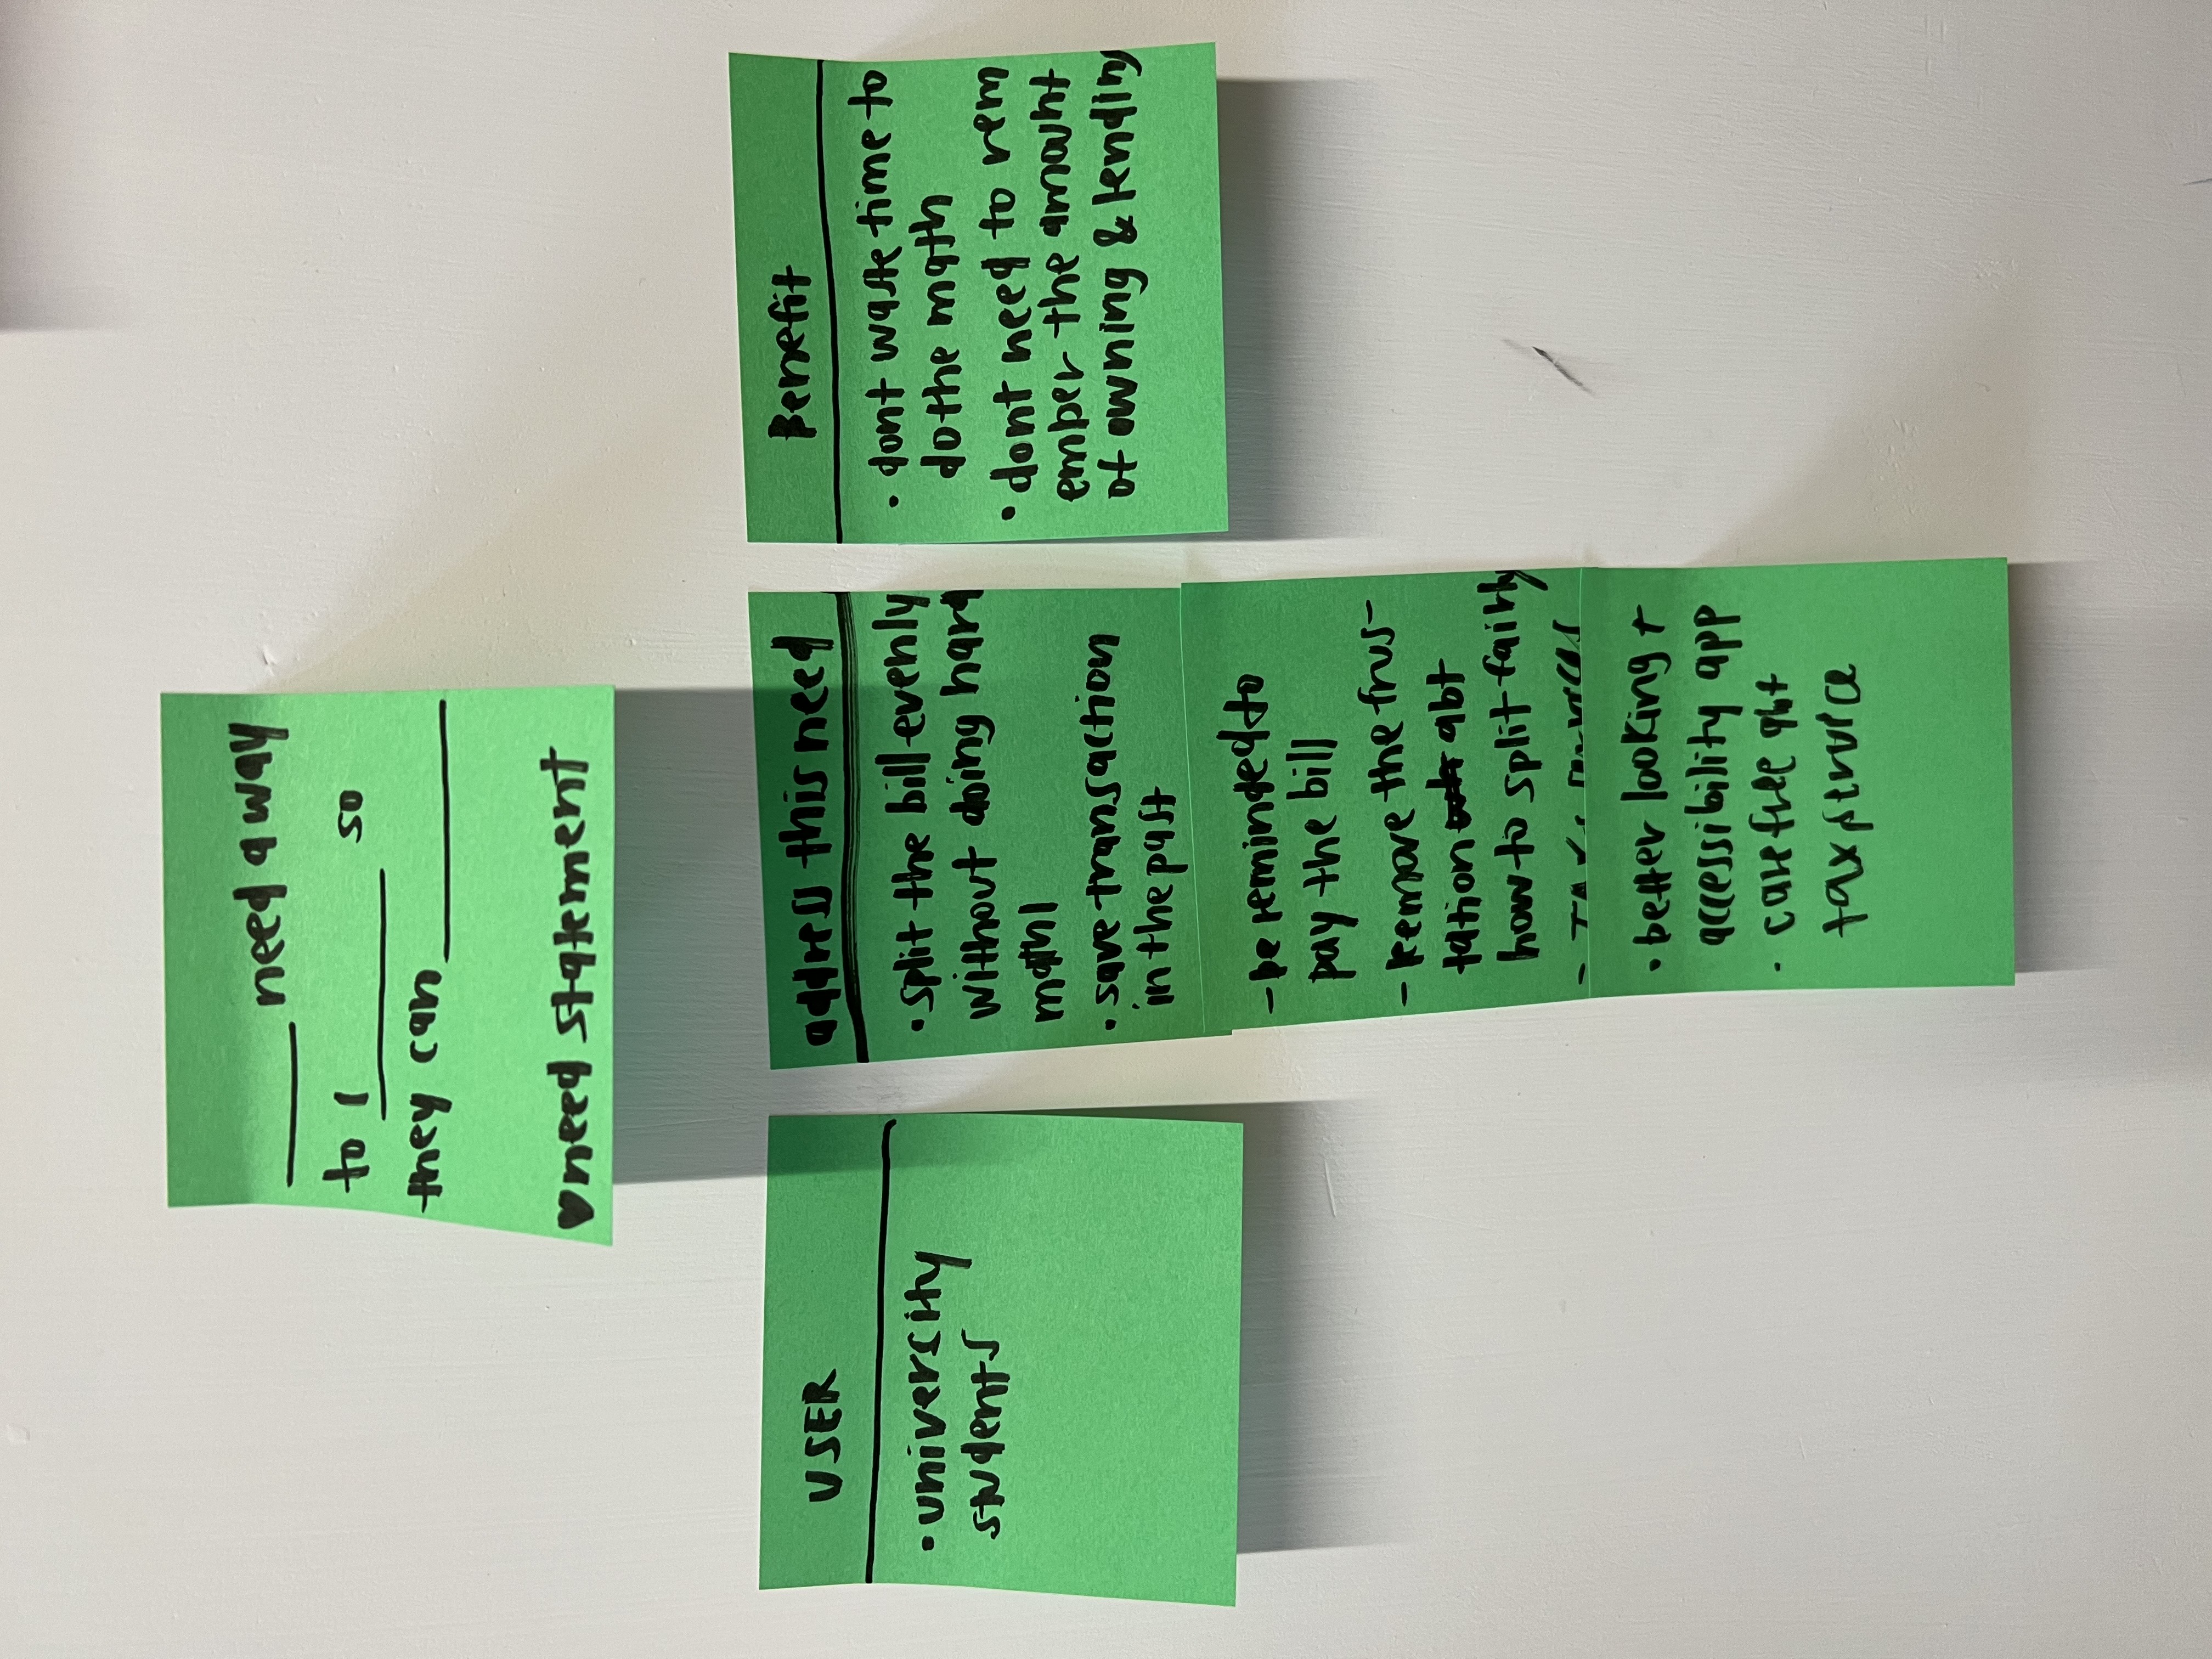 ____ need a way
to ____ so
they can ____
♥need statement
USER
• univercity
students
address this need
• split the bill evenly
without doing hard
math!
• save transaction
in the past
- be reminded to
pay the bill
- Remove the frus-
tation abt
how to split fairly
- TAX
• better looking +
accessibility app
• carefree abt
tax service
Benefit
• dont waste time to
do the math
• dont need to rem
ember the amount
of owning & lending